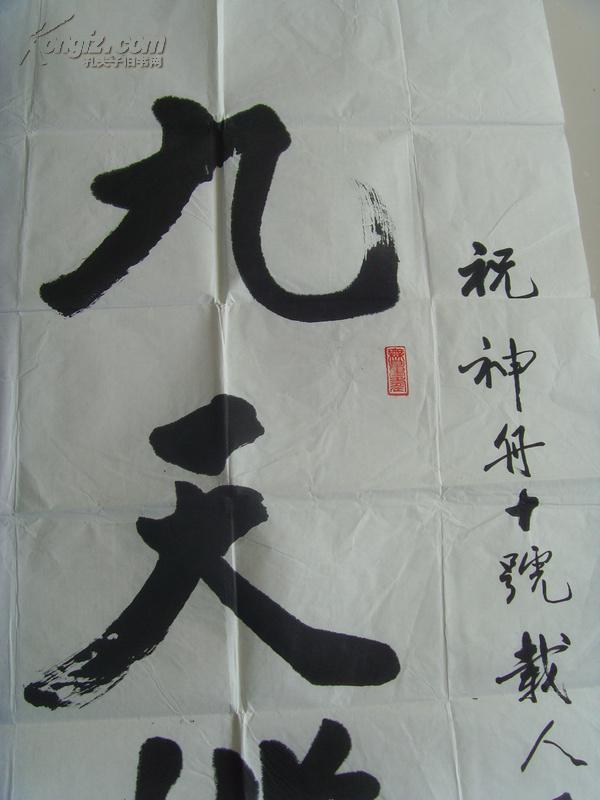 Kongfz.com
孔夫子旧书网
祝神舟十號載人
九天